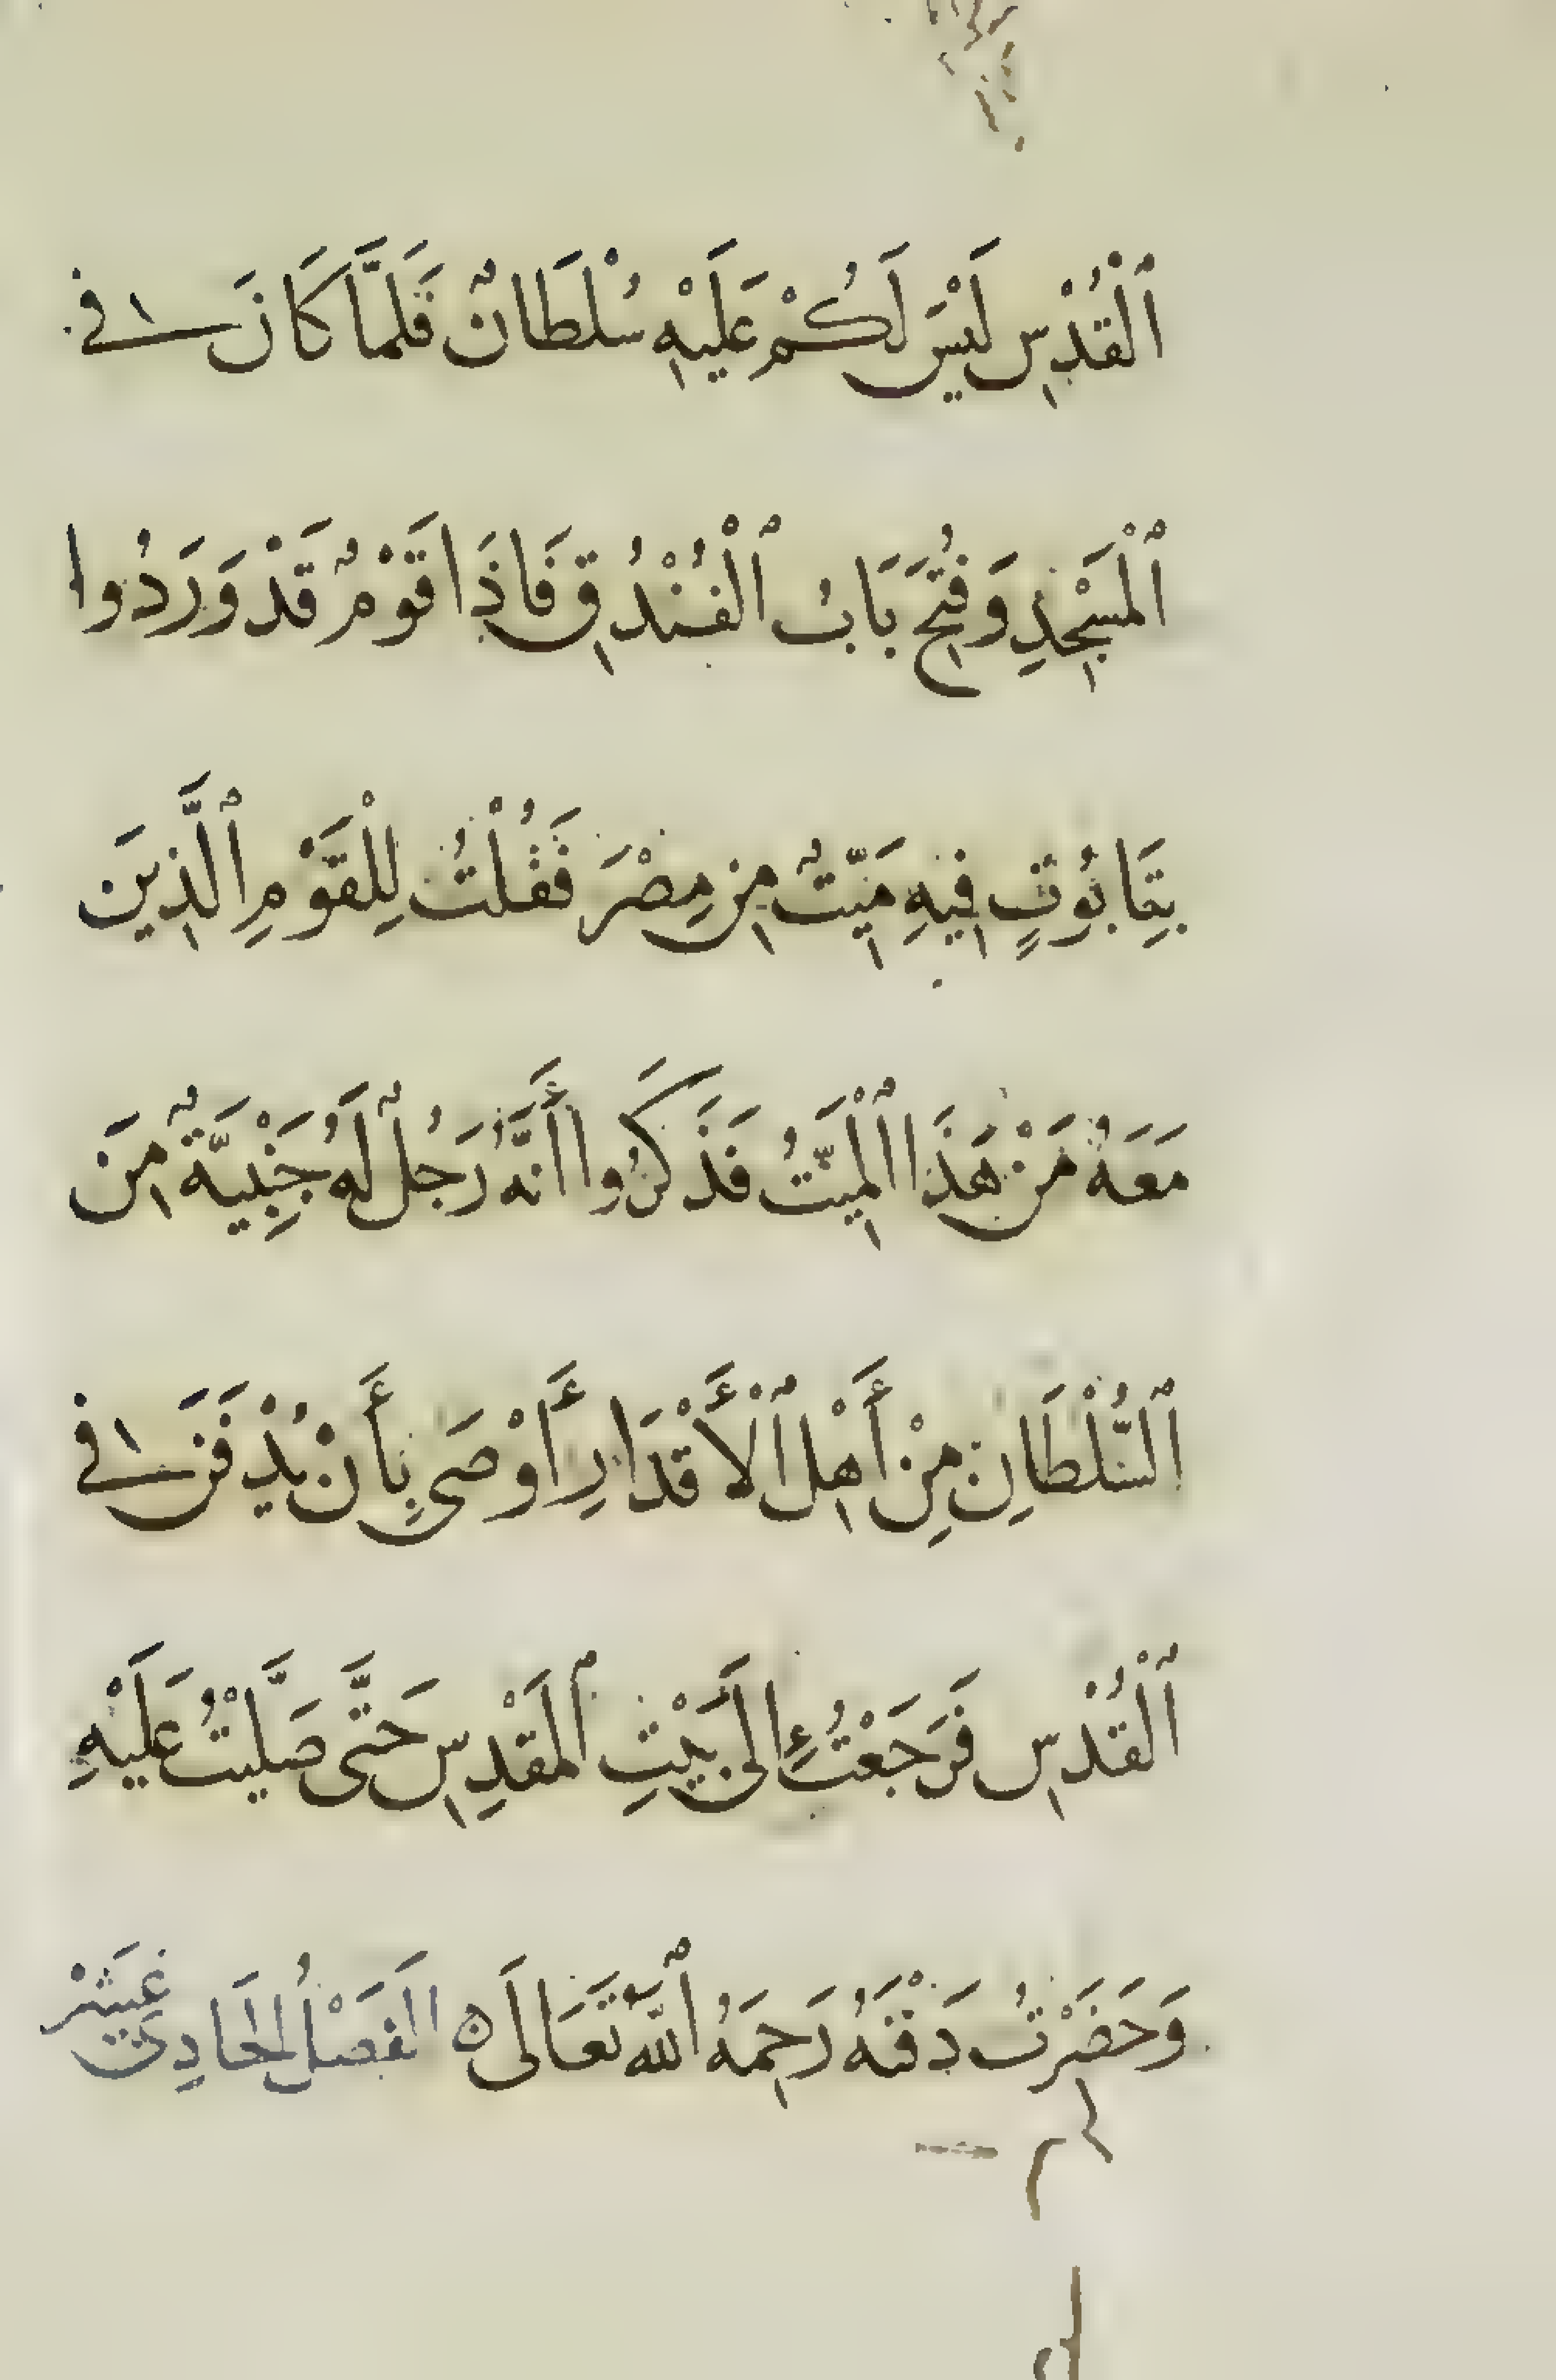 ٱلْقُدْسِ لَيْسَ لَكُمْ عَلَيْهِ سُلْطَانٌ فَلَمَّا كَانَ فِي
ٱلْمَسْجِدِ وَفُتِحَ بَابُ ٱلْفُنْدُقِ فَاِذَا قَوْمٌ قَدْ وَرَدُوا
بِتَابُوتٍ فِيهِ مَيِّتٌ مِن مِصْرَ فَقُلْتُ لِلْقَوْمِ ٱلَّذِينَ
مَعَهُ مَنْ هَذَا ٱلْمَيِّتُ فَذَكَرُوا أَنَّهُ رَجُلٌ لَهُ جَنْبِيَّةٌ مِنَ
ٱلسُّلْطَانِ مِنْ أَهْلِ ٱلْأَقْدَارِ أَوْصَى بِأَنْ يُدْفَنَ فِي
ٱلْقُدْسِ فَرَجَعْتُ إِلَى بَيْتِ ٱلمَقْدِسِ حَتَّى صَلَّيْتُ عَلَيْهِ
وَحَضَرْتُ دَفْنَهُ رَحِمَهُ ٱللَّهُ تَعَالَى ٥ الفَصْلُ الحَادِي عَشَرْ